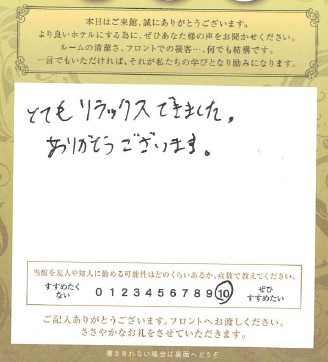 本日はご来館、誠にありがとうございます。
より良いホテルにする為に、ぜひあなた様の声をお聞かせください。
ルームの清潔さ、フロントでの接客…、何でも結構です。
一言でもいただければ、それが私たちの学びとなり励みになります。
とてもリラックスできました。
ありがとうございます。
当館を友人や知人に勧める可能性はどのくらいあるか、点数で教えてください。
すすめたく
ない
0 1 2 3 4 5 6 7 8 9 10
ぜひ
すすめたい
ご記入ありがとうございます。フロントへお渡しください。
ささやかなお礼をさせていただきます。
書ききれない場合は裏面へどうぞ